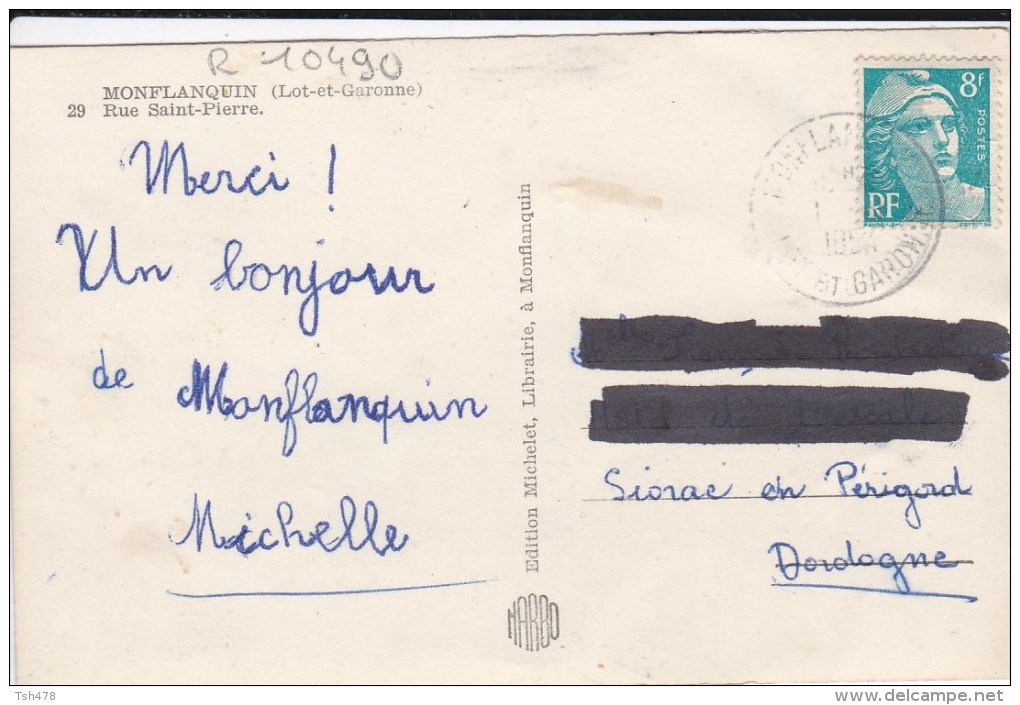 R 10490
MONFLANQUIN (Lot-et-Garonne)
29 Rue Saint-Pierre.
Merci !
Un bonjour
de Monflanquin
Michelle
Edition Michelet, Librairie, à Monflanquin
MARBO
8f
POSTES
RF
ET GARONNE
Siorac en Périgord
Dordogne
Tsh478
www.delcampe.net